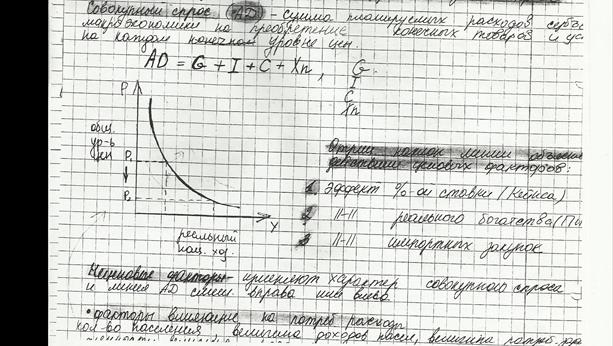 Совокупный спрос (AD) - сумма планируемых расходов субъ
макроэкономики на преобретение конечных товаров и ус
на каждом конечном уровне цен.
AD = G + I + C + Xn,
G
I
C
Xn
P
общ.
ур-ь
цен
P₁
P₂
Y
реальный
нац.
Отриц наклон линии объясн
действием ценовых факторов:
1. Эффект %-ой ставки (Кейнса)
2. 11-11 реального богатства (Пи
3 11-11 импортных закупок
Неценовые факторы - изменяют характер совокупного спроса
и линия AD смещ. вправо или влево.
• факторы влияющие на потреб расход.
кол-во населения величина доходов насел, величина потреб.